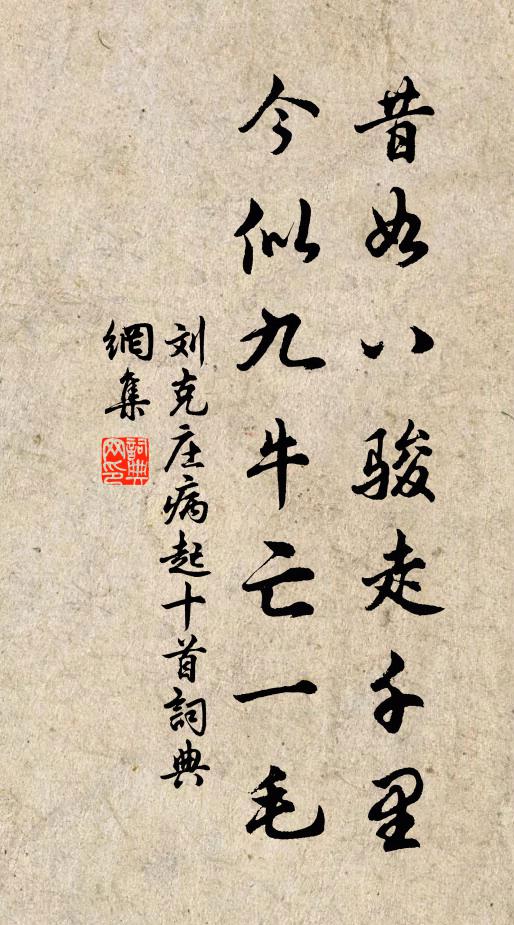 昔如八骏走千里
今似九牛亡一毛
刘克庄病起十首詞典
網集
詞典
网印